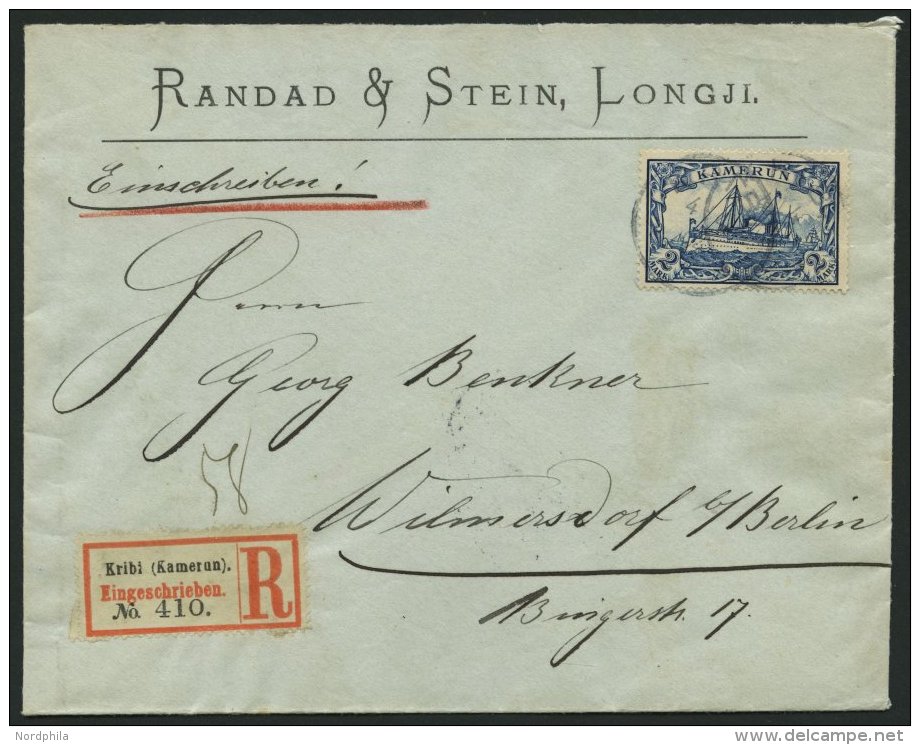 RANDAD & STEIN, LONGJI.
Einschreiben!
KAMERUN
2 2
MARK MARK
Herrn
Georg Benkner
58
Wilmersdorf b/Berlin
Kribi (Kamerun).
Eingeschrieben.
No. 410.
R
Bingerstr. 17.
Nordphila
www.delcampe.net